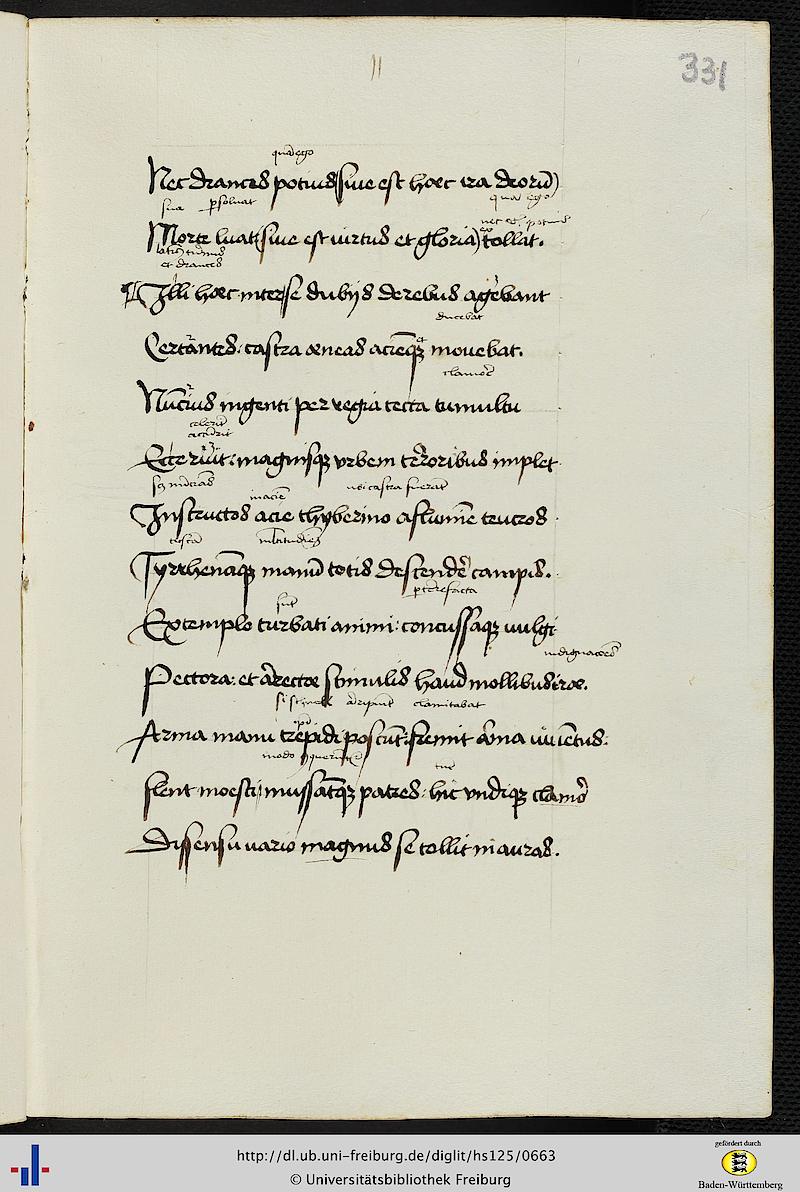 11
331
quam ego
Nec drances potius (siue est hæc ira deorū)
sua persoluat quam ego
Morte luat (siue est uirtus et gloria) tollat.
latinus turnus nec potius
et drances
Illi hæc inter se dubijs de rebus agebant
ducebat
Certantes: castra æneas aciemqȝ mouebat.
clamore
Nuncius ingenti per regia tecta tumultu
celeriter
accurrit
Ecce ruit: magnisqȝ vrbem terroribus implet
in aciem ubi castra fuerant
Instructos acie thyberino a flumine teucros
tuscam multitudinem
Tyrrhenamqȝ manū totis descendere campis.
perterrefacta
sunt
Extemplo turbati animi: concussaqȝ uulgi
indignationes
Pectora: et arrectæ stimulis haud mollibus iræ.
clamitabat
Arma manu trepidi poscūt: fremit arma iuuentus:
modo
flent mœsti mussantqȝ patres: hic vndiqȝ clamor
Dissensu uario magnus se tollit in auras.
http://dl.ub.uni-freiburg.de/diglit/hs125/0663
© Universitätsbibliothek Freiburg
gefördert durch
Baden-Württemberg